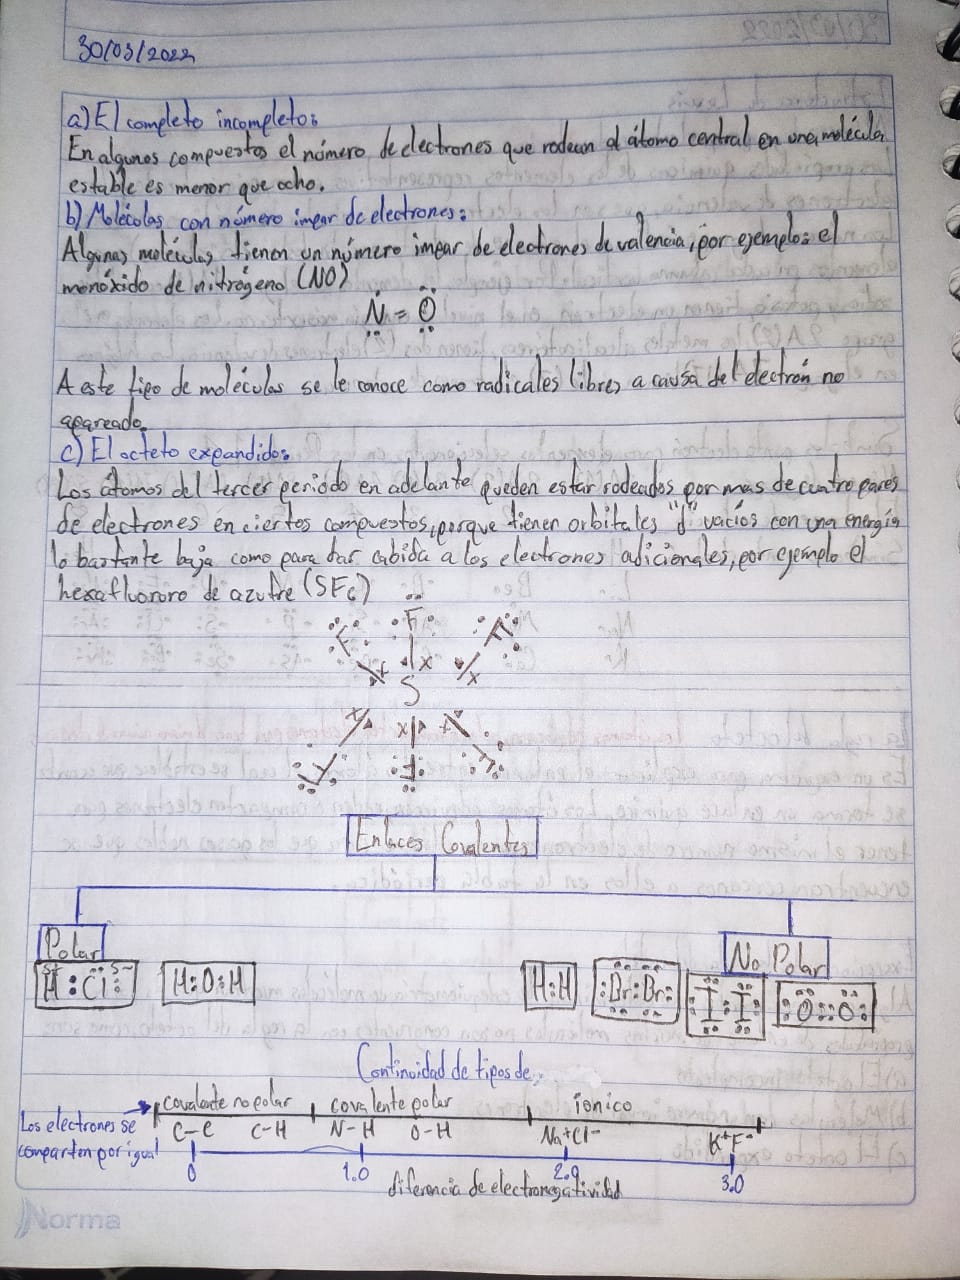 30/03/2022
a) El completo incompleto:
En algunos compuestos el número de electrones que rodean al átomo central en una molécula
estable es menor que ocho.
b) Moléculas con número impar de electrones:
Algunas moléculas tienen un número impar de electrones de valencia, por ejemplo: el
monóxido de nitrógeno (NO)
N = O
A este tipo de moléculas se le conoce como radicales libres a causa del electrón no
apareado.
c) El octeto expandido:
Los átomos del tercer periodo en adelante pueden estar rodeados por mas de cuatro pares
de electrones en ciertos compuestos, porque tienen orbitales "d" vacíos con una energía
lo bastante baja como para dar cabida a los electrones adicionales, por ejemplo el
hexafluoruro de azufre (SF6)
F F F
x x x
S
x x x
F F F
Enlaces Covalentes
Polar
No Polar
δ+ δ-
H:Cl:
H:O:H
H:H
:Br:Br:
:I:I:
O::O:
Continuidad de tipos de:
covalente no polar covalente polar iónico
Los electrones se
comparten por igual
C-C C-H N-H O-H Na+Cl- K+F-
0 1.0 2.0 3.0
diferencia de electronegatividad
Norma